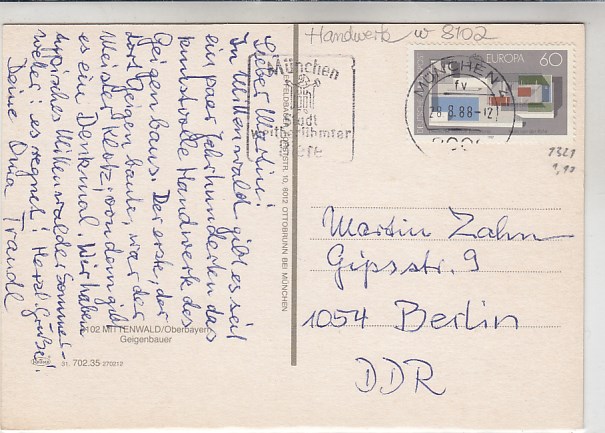 Handwerk W 8102
Lieber Martin!
In Mittenwald gibt es seit
ein paar Jahrhunderten das
kunstvolle Handwerk des
Geigenbaus. Der erste, der
dort Geigen baute, war der
Meister Klotz, von dem gibt
es ein Denkmal. Wir haben
typisches Mittenwalder Sommer-
wetter: es regnet! Herzl. Grüße!
Deine Oma Traudl
München
Stadt
weltberühmter
Biere
EUROPA 60
MÜNCHEN
fv
28.8.88-12
1321
1,10
Martin Zahn
Gipsstr. 9
1054 Berlin
DDR
8102 MITTENWALD/Oberbayern
Geigenbauer
51. 702.35 270212
STR. 10, 8012 OTTOBRUNN BEI MÜNCHEN